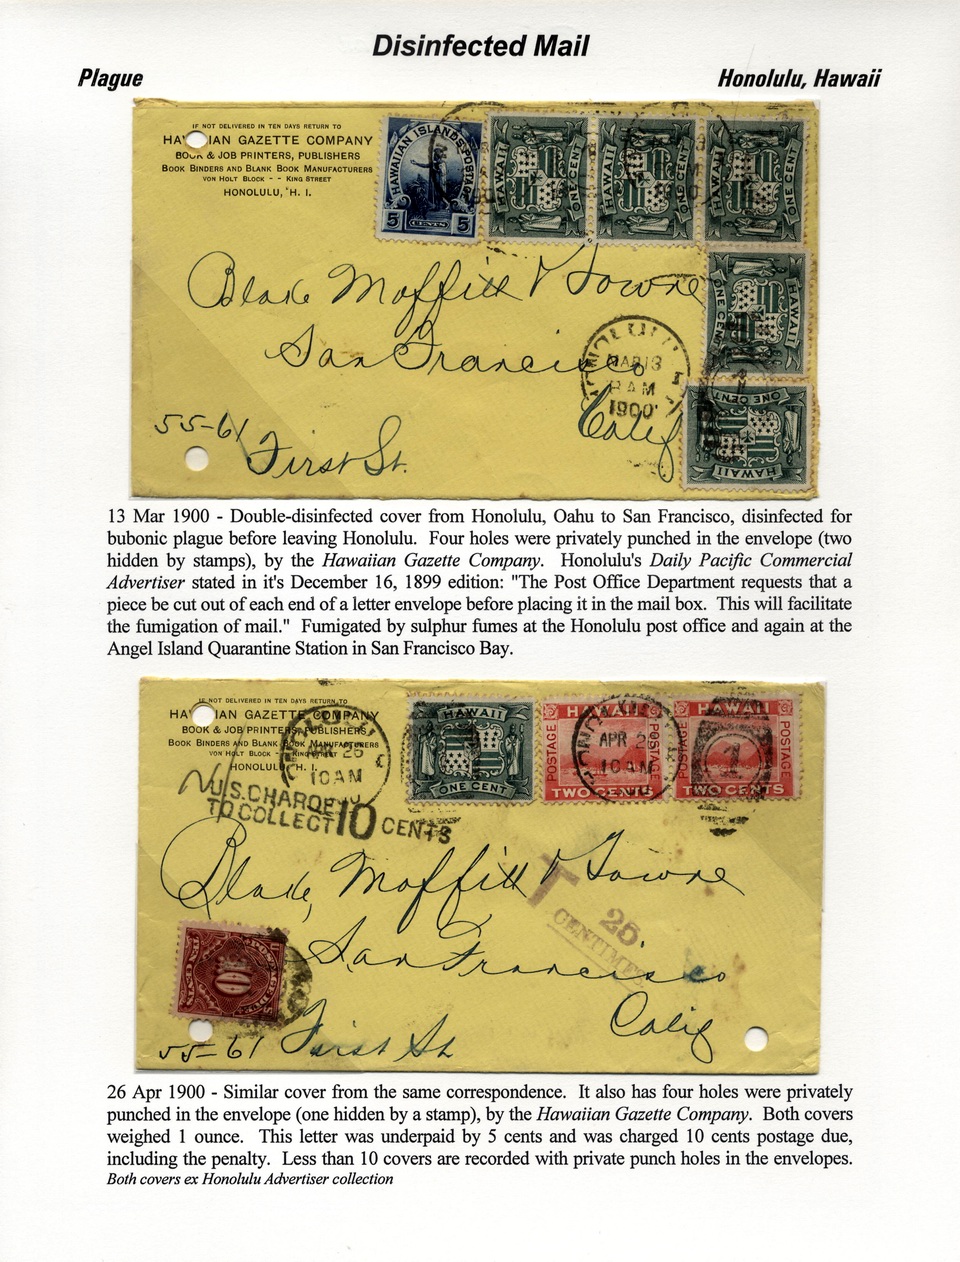 Disinfected Mail
Plague
Honolulu, Hawaii
IF NOT DELIVERED IN TEN DAYS RETURN TO
HAW IAN GAZETTE COMPANY
BOOK & JOB PRINTERS, PUBLISHERS
BOOK BINDERS AND BLANK BOOK MANUFACTURERS
VON HOLT BLOCK - - KING STREET
HONOLULU, H. I.
HAWAIIAN ISLANDS POSTAGE
5 CENTS 5
HAWAII ONE CENT
HAWAII ONE CENT
HAWAII ONE CENT
HAWAII ONE CENT
HAWAII ONE CENT
Blake Moffitt & Towne
San Francisco
Calif
55-61 First St.
HONOLULU
MAR 13
AM
1900
13 Mar 1900 - Double-disinfected cover from Honolulu, Oahu to San Francisco, disinfected for
bubonic plague before leaving Honolulu. Four holes were privately punched in the envelope (two
hidden by stamps), by the Hawaiian Gazette Company. Honolulu's Daily Pacific Commercial
Advertiser stated in it's December 16, 1899 edition: "The Post Office Department requests that a
piece be cut out of each end of a letter envelope before placing it in the mail box. This will facilitate
the fumigation of mail." Fumigated by sulphur fumes at the Honolulu post office and again at the
Angel Island Quarantine Station in San Francisco Bay.
IF NOT DELIVERED IN TEN DAYS RETURN TO
HAW IAN GAZETTE COMPANY
BOOK & JOB PRINTERS, PUBLISHERS
BOOK BINDERS AND BLANK BOOK MANUFACTURERS
VON HOLT BLOCK - KING STREET
HONOLULU, H. I.
26
10 AM
U.S. CHARGE
TO COLLECT 10 CENTS
HAWAII
ONE CENT
HAWAII
POSTAGE POSTAGE
TWO CENTS
APR 26
10 AM
HAWAII
POSTAGE POSTAGE
TWO CENTS
1
Blake, Moffitt & Towne
San Francisco
Calif
T
25
CENTIMES
10
55-61 First St
26 Apr 1900 - Similar cover from the same correspondence. It also has four holes were privately
punched in the envelope (one hidden by a stamp), by the Hawaiian Gazette Company. Both covers
weighed 1 ounce. This letter was underpaid by 5 cents and was charged 10 cents postage due,
including the penalty. Less than 10 covers are recorded with private punch holes in the envelopes.
Both covers ex Honolulu Advertiser collection